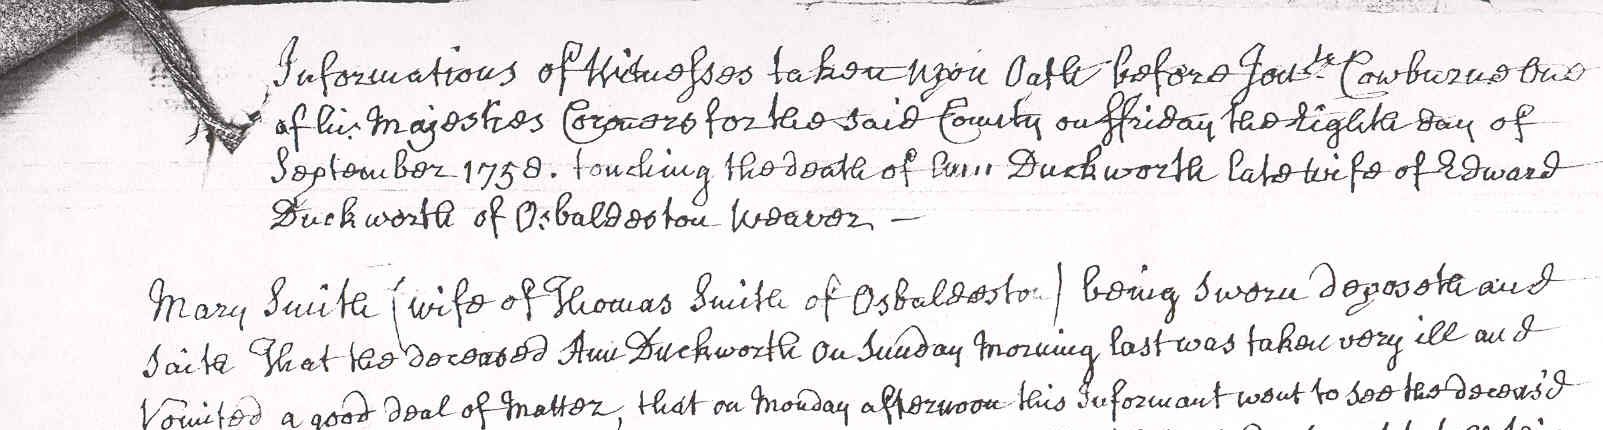 Informations of Witnesses taken upon Oath before Jonth. Cowburne one
of his Majesties Coroners for the said County on ffriday the Eighth day of
September 1758. touching the death of Ann Duckworth late wife of Edward
Duckworth of Osbaldeston Weaver —
Mary Smith (wife of Thomas Smith of Osbaldeston) being sworn deposeth and
saith That the deceased Ann Duckworth on Sunday Morning last was taken very ill and
Vomited a good deal of Matter, that on Monday afternoon this Informant went to see the deceas'd